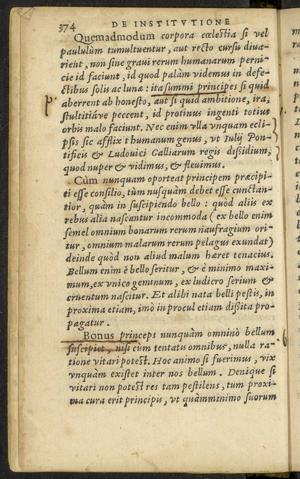 374 DE INSTITVTIONE
Quemadmodum corpora cœlestia si vel
paululùm tumultuentur, aut recto cursu diua-
rient, non sine graui rerum humanarum perni-
cie id faciunt, id quod palàm videmus in defe-
ctibus solis ac lunæ: ita summi principes si quid
aberrent ab honesto, aut si quid ambitione, ira,
stultitiáve peccent, id protinus ingenti totius
orbis malo faciunt. Nec enim vlla vnquam ecli-
psis sic afflixit humanum genus, vt Iulij Pon-
tificis & Ludouici Galliarum regis dissidium,
quod nuper & vidimus, & fleuimus.
Cùm nunquam oporteat principem præcipi-
ti esse consilio, tùm nusquàm debet esse cunctan-
tior, quàm in suscipiendo bello: quòd aliis ex
rebus alia nascantur incommoda (ex bello enim
semel omnium bonarum rerum naufragium ori-
tur, omnium malarum rerum pelagus exundat)
deinde quòd non aliud malum hæret tenacius.
Bellum enim è bello seritur, & è minimo maxi-
mum, ex vnico geminum, ex ludicro serium &
cruentum nascitur. Et alibi nata belli pestis, in
proxima etiam, imò in procul etiam dissita pro-
pagatur.
Bonus princeps nunquàm omninò bellum
suscipiet, nisi cùm tentatis omnibus, nulla ra-
tione vitari potest. Hoc animo si fuerimus, vix
vnquàm existet inter nos bellum. Denique si
vitari non potest res tam pestilens, tum proxi-
ma cura erit principis, vt quàmminimo suorum